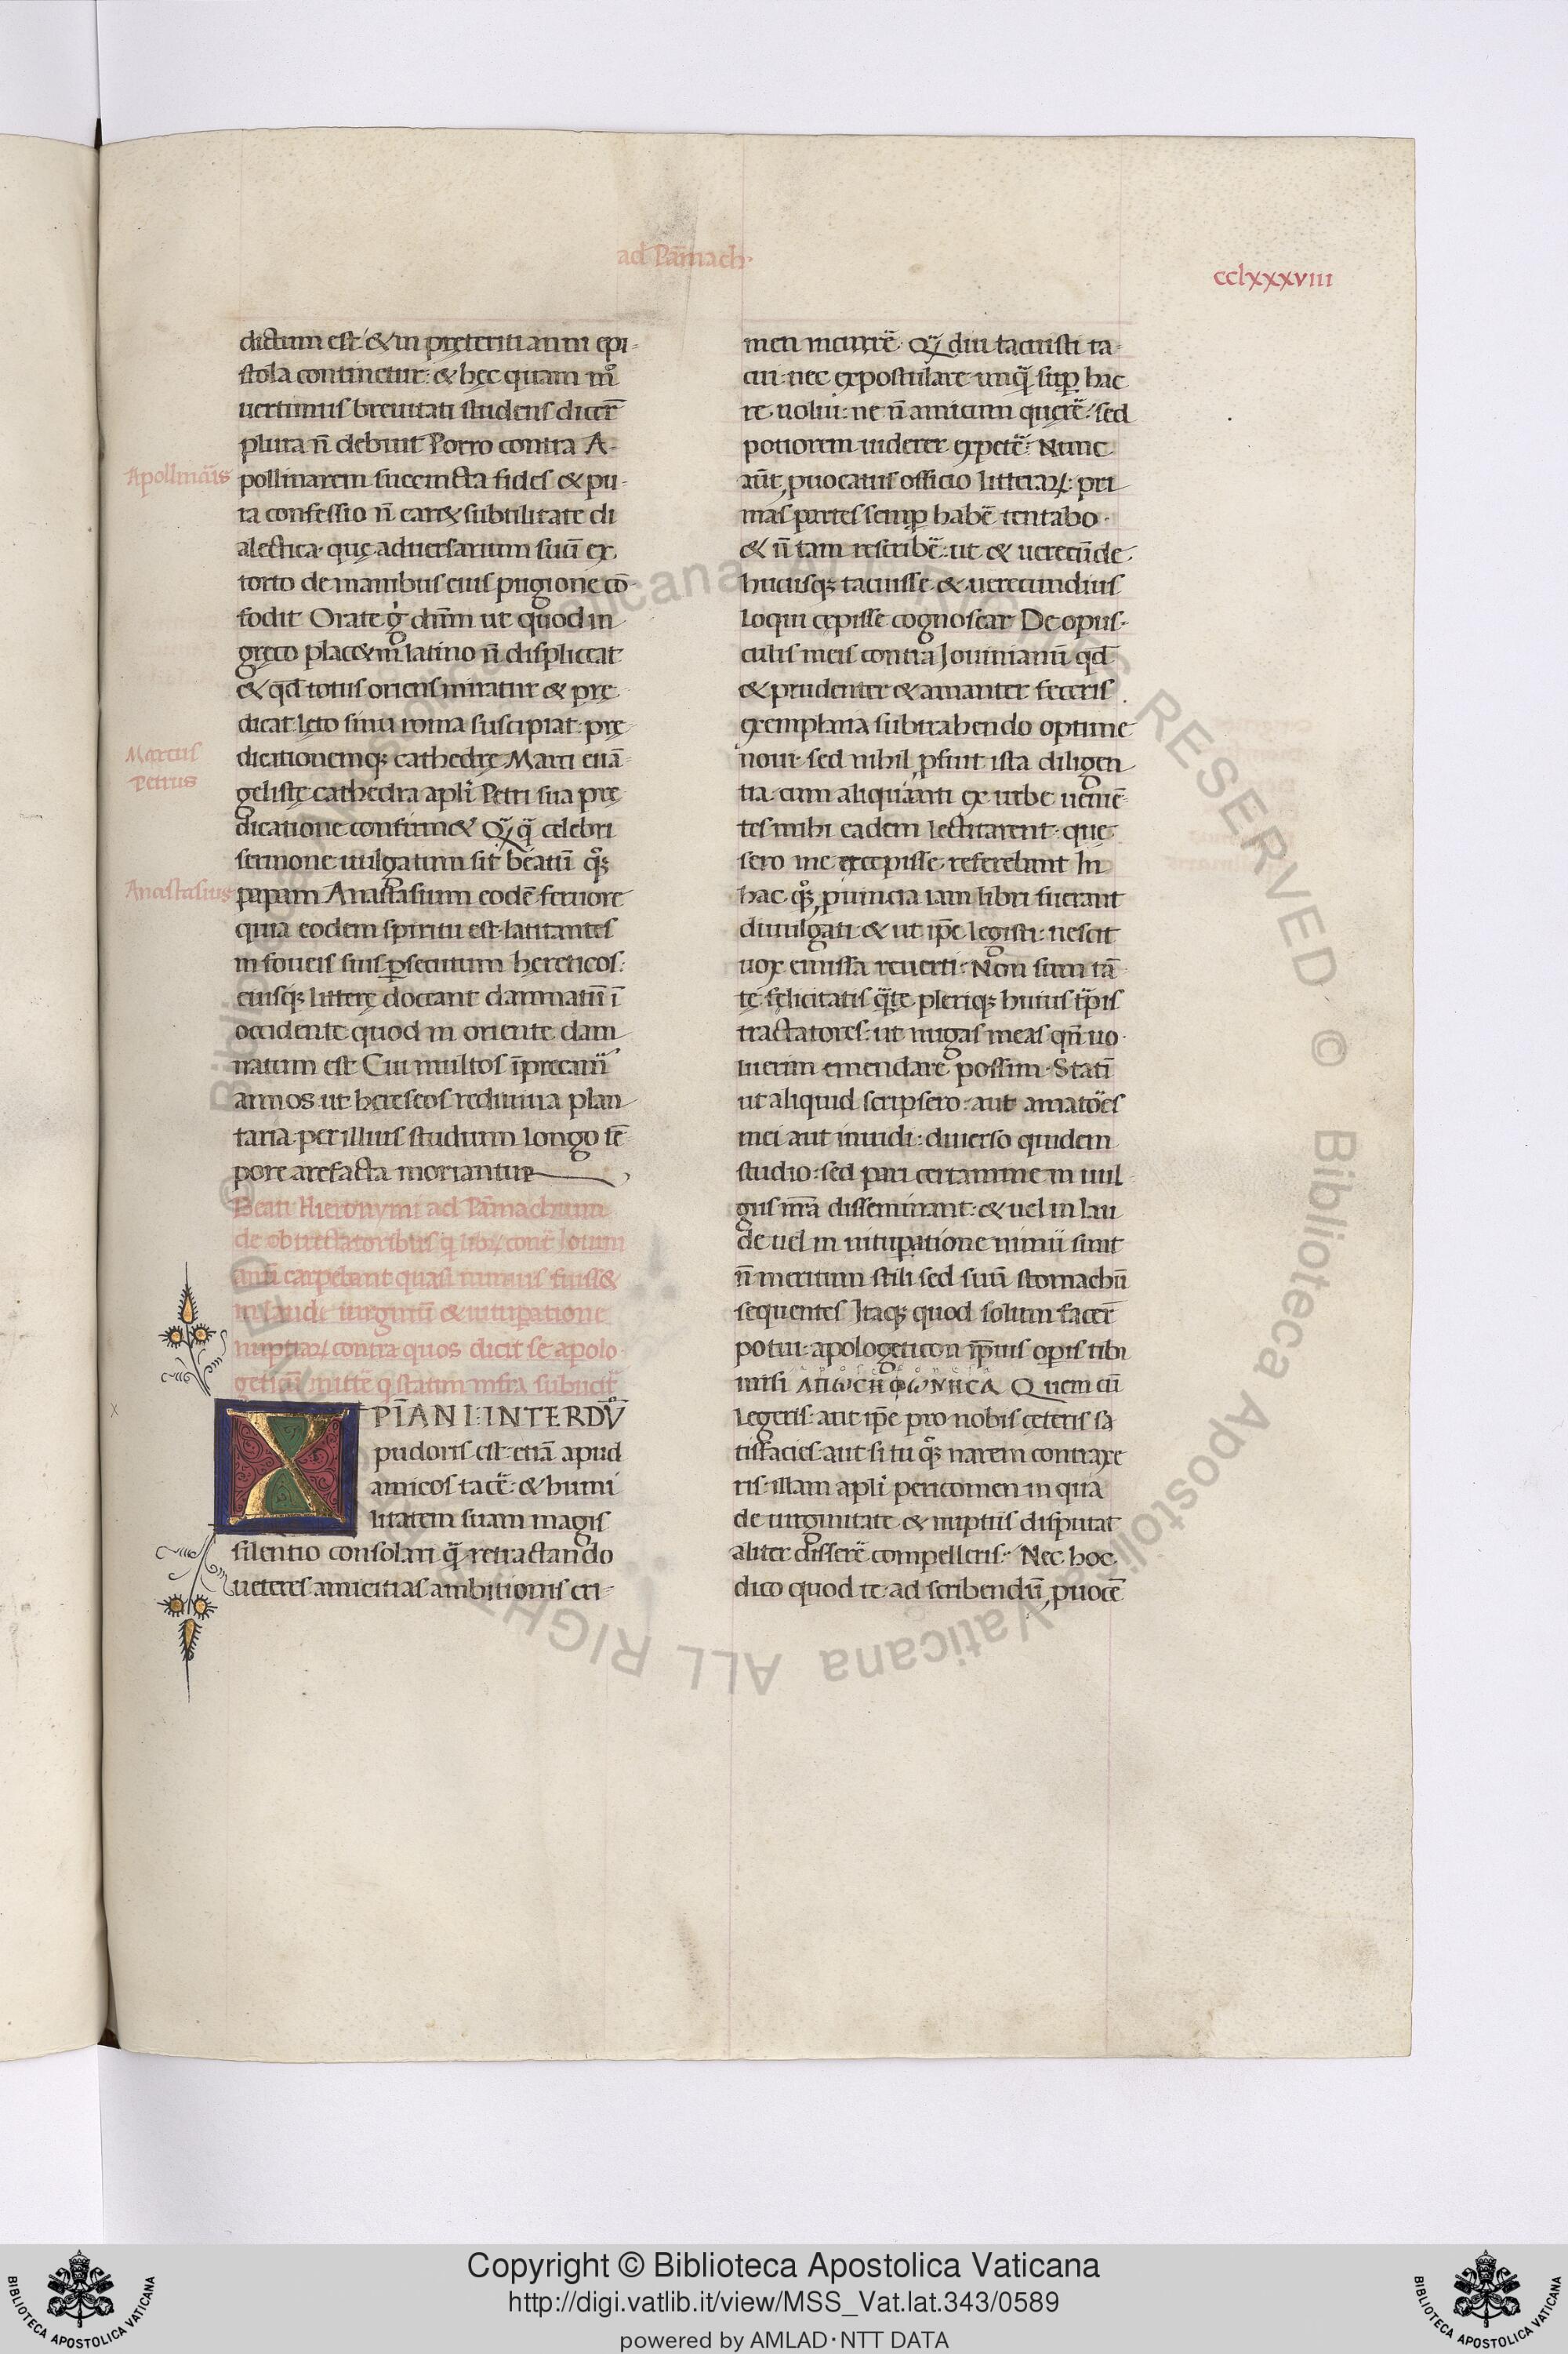 ad Pām̄ach·
cclxxxviii
dictum est: & in pręteriti anni epi-
stola continetur: & hęc quam nū͛c
uertimus breuitati studens dicer̄
plura n̄ debuit Porro contra A-
Apollinār̄is
pollinarem succincta fides & pu-
ra confessio n̄ car& subtilitate di
alectica· quę aduersarium suū ex
torto de manibus eius pugione cō
fodit Orate g̊ dn̄m ut quod in
gręco plac& in latino n̄ displiceat
& qd̄ totus oriens miratur & prę
dicat lęto sinu roma suscipiat: prę
Marcus
Petrus
dicationemq; cathedrę Marci euā-
gelistę cathedra apl̄i Petri sua prę
dicatione confirm& Q̨ꝗ̄ celebri
sermone uulgatum sit beatū qͦꝫ
Anastasius
papam Anastasium eodē feruore
quia eodem spiritu est· latitantes
in foueis suis ꝑsecutum hereticos:
eiusq; litterę doceant damnatū ī
occidente quod in oriente dam
natum est Cui multos īprecam̄
annos ut hereseos rediuiua plan
taria per illius studium longo tē
pore arefacta moriantur
Beati Hieronymi ad Pām̄achium
de obtrectatoribus q̄ libꝝ cont̄ Iouini
anū carpebant quasi nimius fuiss&
in laude uirginū & uituꝑatione
nuptiaꝝ contra quos dicit se apolo
geticū mitte q̄ statim infra subicit̄
XP̄IANI: INTERDŪ
pudoris est· etiā apud
amicos tacē: & humi
litatem suam magis
silentio consolari q̄ retractando
ueteres amicitias ambitionis cri-
men incurrē· Q̨ diu tacuisti ta-
cui: nec expostulare unq̄ suꝑ hac
re· uolui: ne n̄ amicum querē: sed
potiorem uiderer expetē: Nunc
aūt ꝓuocatus officio litteraꝝ: pri
mas partes semꝑ habē tentabo·
& n̄ tam rescribē: ut & uerecūde·
hucusq; tacuisse & uerecundius
loqui cępisse cognoscar De opus-
culis meis contra Iouinianū qd̄
& prudenter & amanter feceris
exemplaria subtrahendo optime
noui· sed nihil ꝓfuit ista diligen
tia· cum aliquanti ex urbe uenien̄-
tes mihi eadem lectitarent: que
se romę excepisse referebant In
hac qͦꝫ ꝓuincia iam libri fuerant
diuulgati· & ut ip̄e legisti: nescit
uox emissa reuerti: Non sum tā-
tę fęlicitatis q̄tę plerique huius tp̄is
tractatores: ut nugas meas qn̄ uo-
luerim emendare possim· Statī
ut aliquid scripsero: aut amatoēs
mei aut inuidi: diuerso quidem
studio: sed pari certamine in uul
gus nr̄a disseminant: & uel in lau
de uel in uituꝑatione nimii sunt
n̄ meritum stili sed suū stomachū
sequentes Itaq; quod solum facer̄
potui: apologeticon ip̄ius opis tibi
misi ΑΠΩϹΗΦΩΝΗϹΑ Quem cū
legeris: aut ip̄e pro nobis cęteris sa
tisfacies· aut si tu qͦꝫ narem contraxe
ris: illam apl̄i pericomen in qua
de uirginitate & nuptiis disputat
aliter disserē compelleris: Nec hoc
dico quod te· ad scribendū ꝓuocē
© Biblioteca Apostolica Vaticana ALL RIGHTS RESERVED © Biblioteca Apostolica Vaticana ALL RIGHTS RESERVED
Copyright © Biblioteca Apostolica Vaticana
http://digi.vatlib.it/view/MSS_Vat.lat.343/0589
powered by AMLAD·NTT DATA
BIBLIOTECA APOSTOLICA VATICANA
BIBLIOTECA APOSTOLICA VATICANA